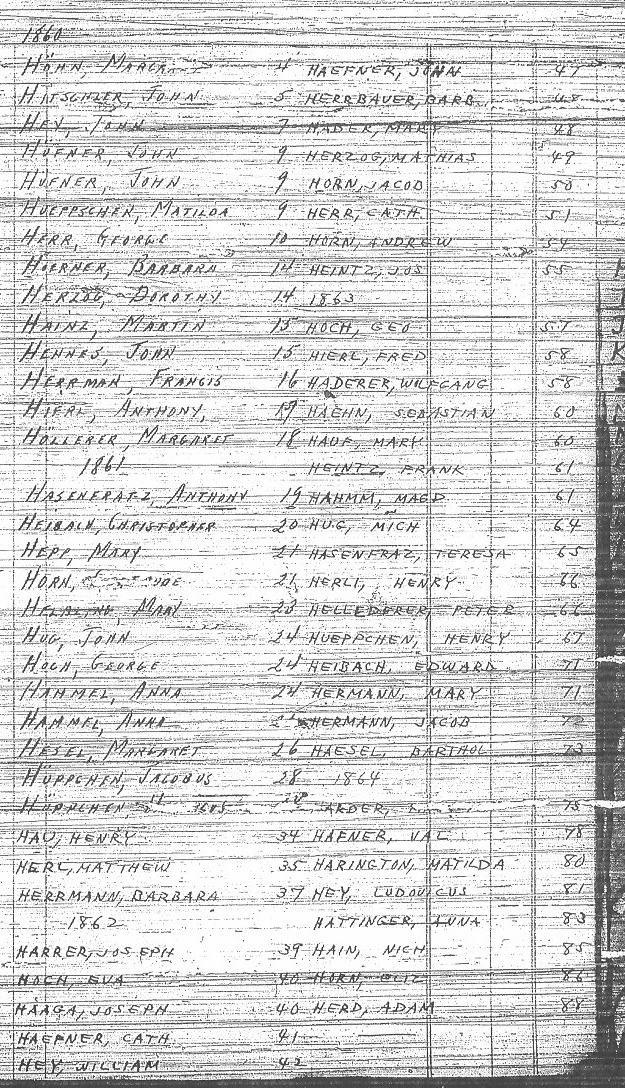 1860
HÖHN, MARIA
HITSCHLER, JOHN 5
HEY, JOHN 7
HÜFNER, JOHN 9
HÜFNER, JOHN 9
HUEPPSCHEN, MATILDA 9
HERR, GEORGE 10
HOERNER, BARBARA 14
HERZOG, DOROTHY 14
HAINZ, MARTIN 15
HENNES, JOHN 15
HERRMAN, FRANCIS 16
HIERL, ANTHONY, 17
HOLLERER, MARGARET 18
1861
HASENFRATZ, ANTHONY 19
HEIBACH, CHRISTOPHER 20
HEPP, MARY 21
HORN, 21
MARY 23
HUG, JOHN 24
HOCH, GEORGE 24
HAMMEL, ANNA 24
HAMMEL, ANNA
HESEL, MARGARET 26
HÜPPCHEN, JACOBUS 28
HÜPPCHEN,
HAU, HENRY 34
HERL, MATTHEW 35
HERRMANN, BARBARA 37
1862
HARRER, JOSEPH 39
HOCH, EVA 40
HAAGA, JOSEPH 40
HAEFNER, CATH. 41
HEY, WILLIAM 42
HAEFNER, JOHN 47
HERRBAUER, BARB.
HADER, MARY 48
HERZOG, MATHIAS 49
HORN, JACOB 50
HERR, CATH. 51
HORN, ANDREW 54
HEINTZ, JOS 55
1863
HOCH, GEO 57
HIERL, FRED 58
HADERER, WOLFGANG 58
HAEHN, SEBASTIAN 60
HAUF, MARY 60
HEINTZ, FRANK 61
HAHMM, MAGD 61
HUG, MICH 64
HASENFRAZ, TERESA 65
HERLI, HENRY 66
HELLEDERER, PETER 66
HUEPPCHEN, HENRY 67
HEIBACH, EDWARD 71
HERMANN, MARY 71
HERMANN, JACOB 72
HAESEL, BARTHOL 73
1864
75
HAFNER, VAL 78
HARINGTON, MATILDA 80
HEY, LUDOVICUS 81
HATTINGER, ANNA 83
HAIN, NICH 85
HORN, ELIZ 86
HERD, ADAM 88